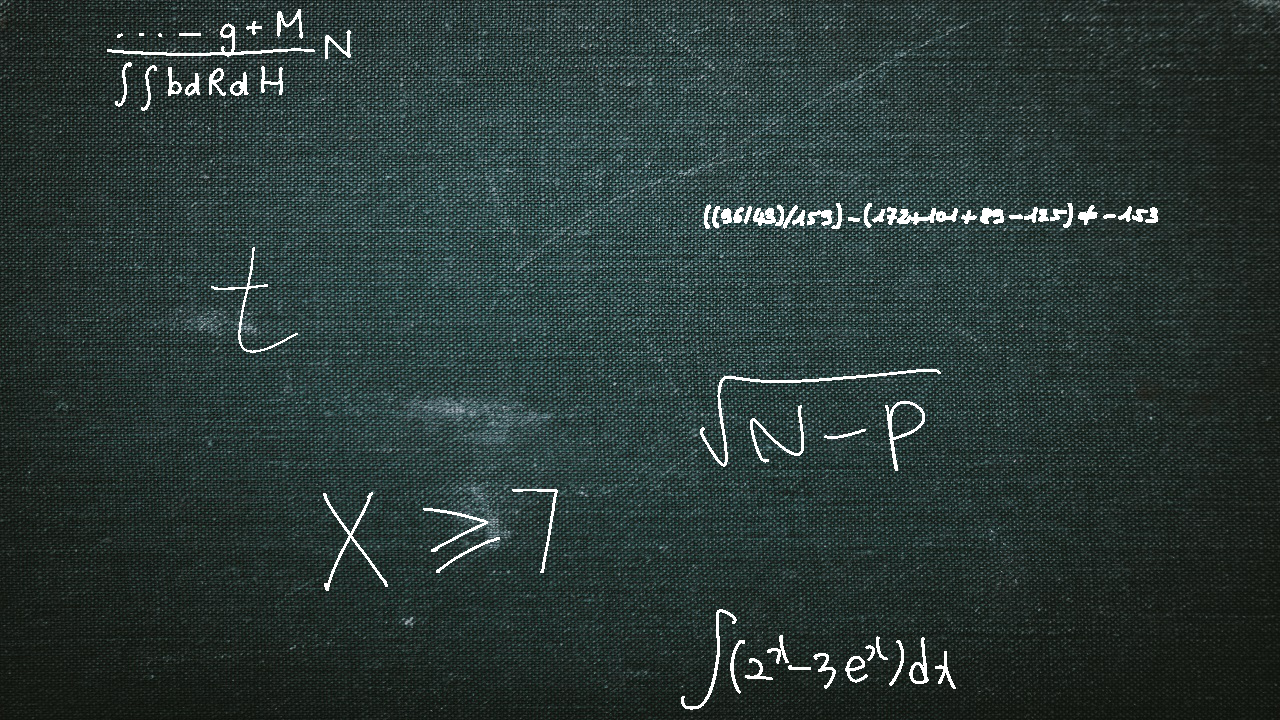 \frac{\dots - g + M}{\int \int b d R d H} N
((96/43)/159) - (172+101+89-125) ≠ -153
t
\sqrt{N - P}
X ≥ 7
\int (2^x - 3e^x) dx